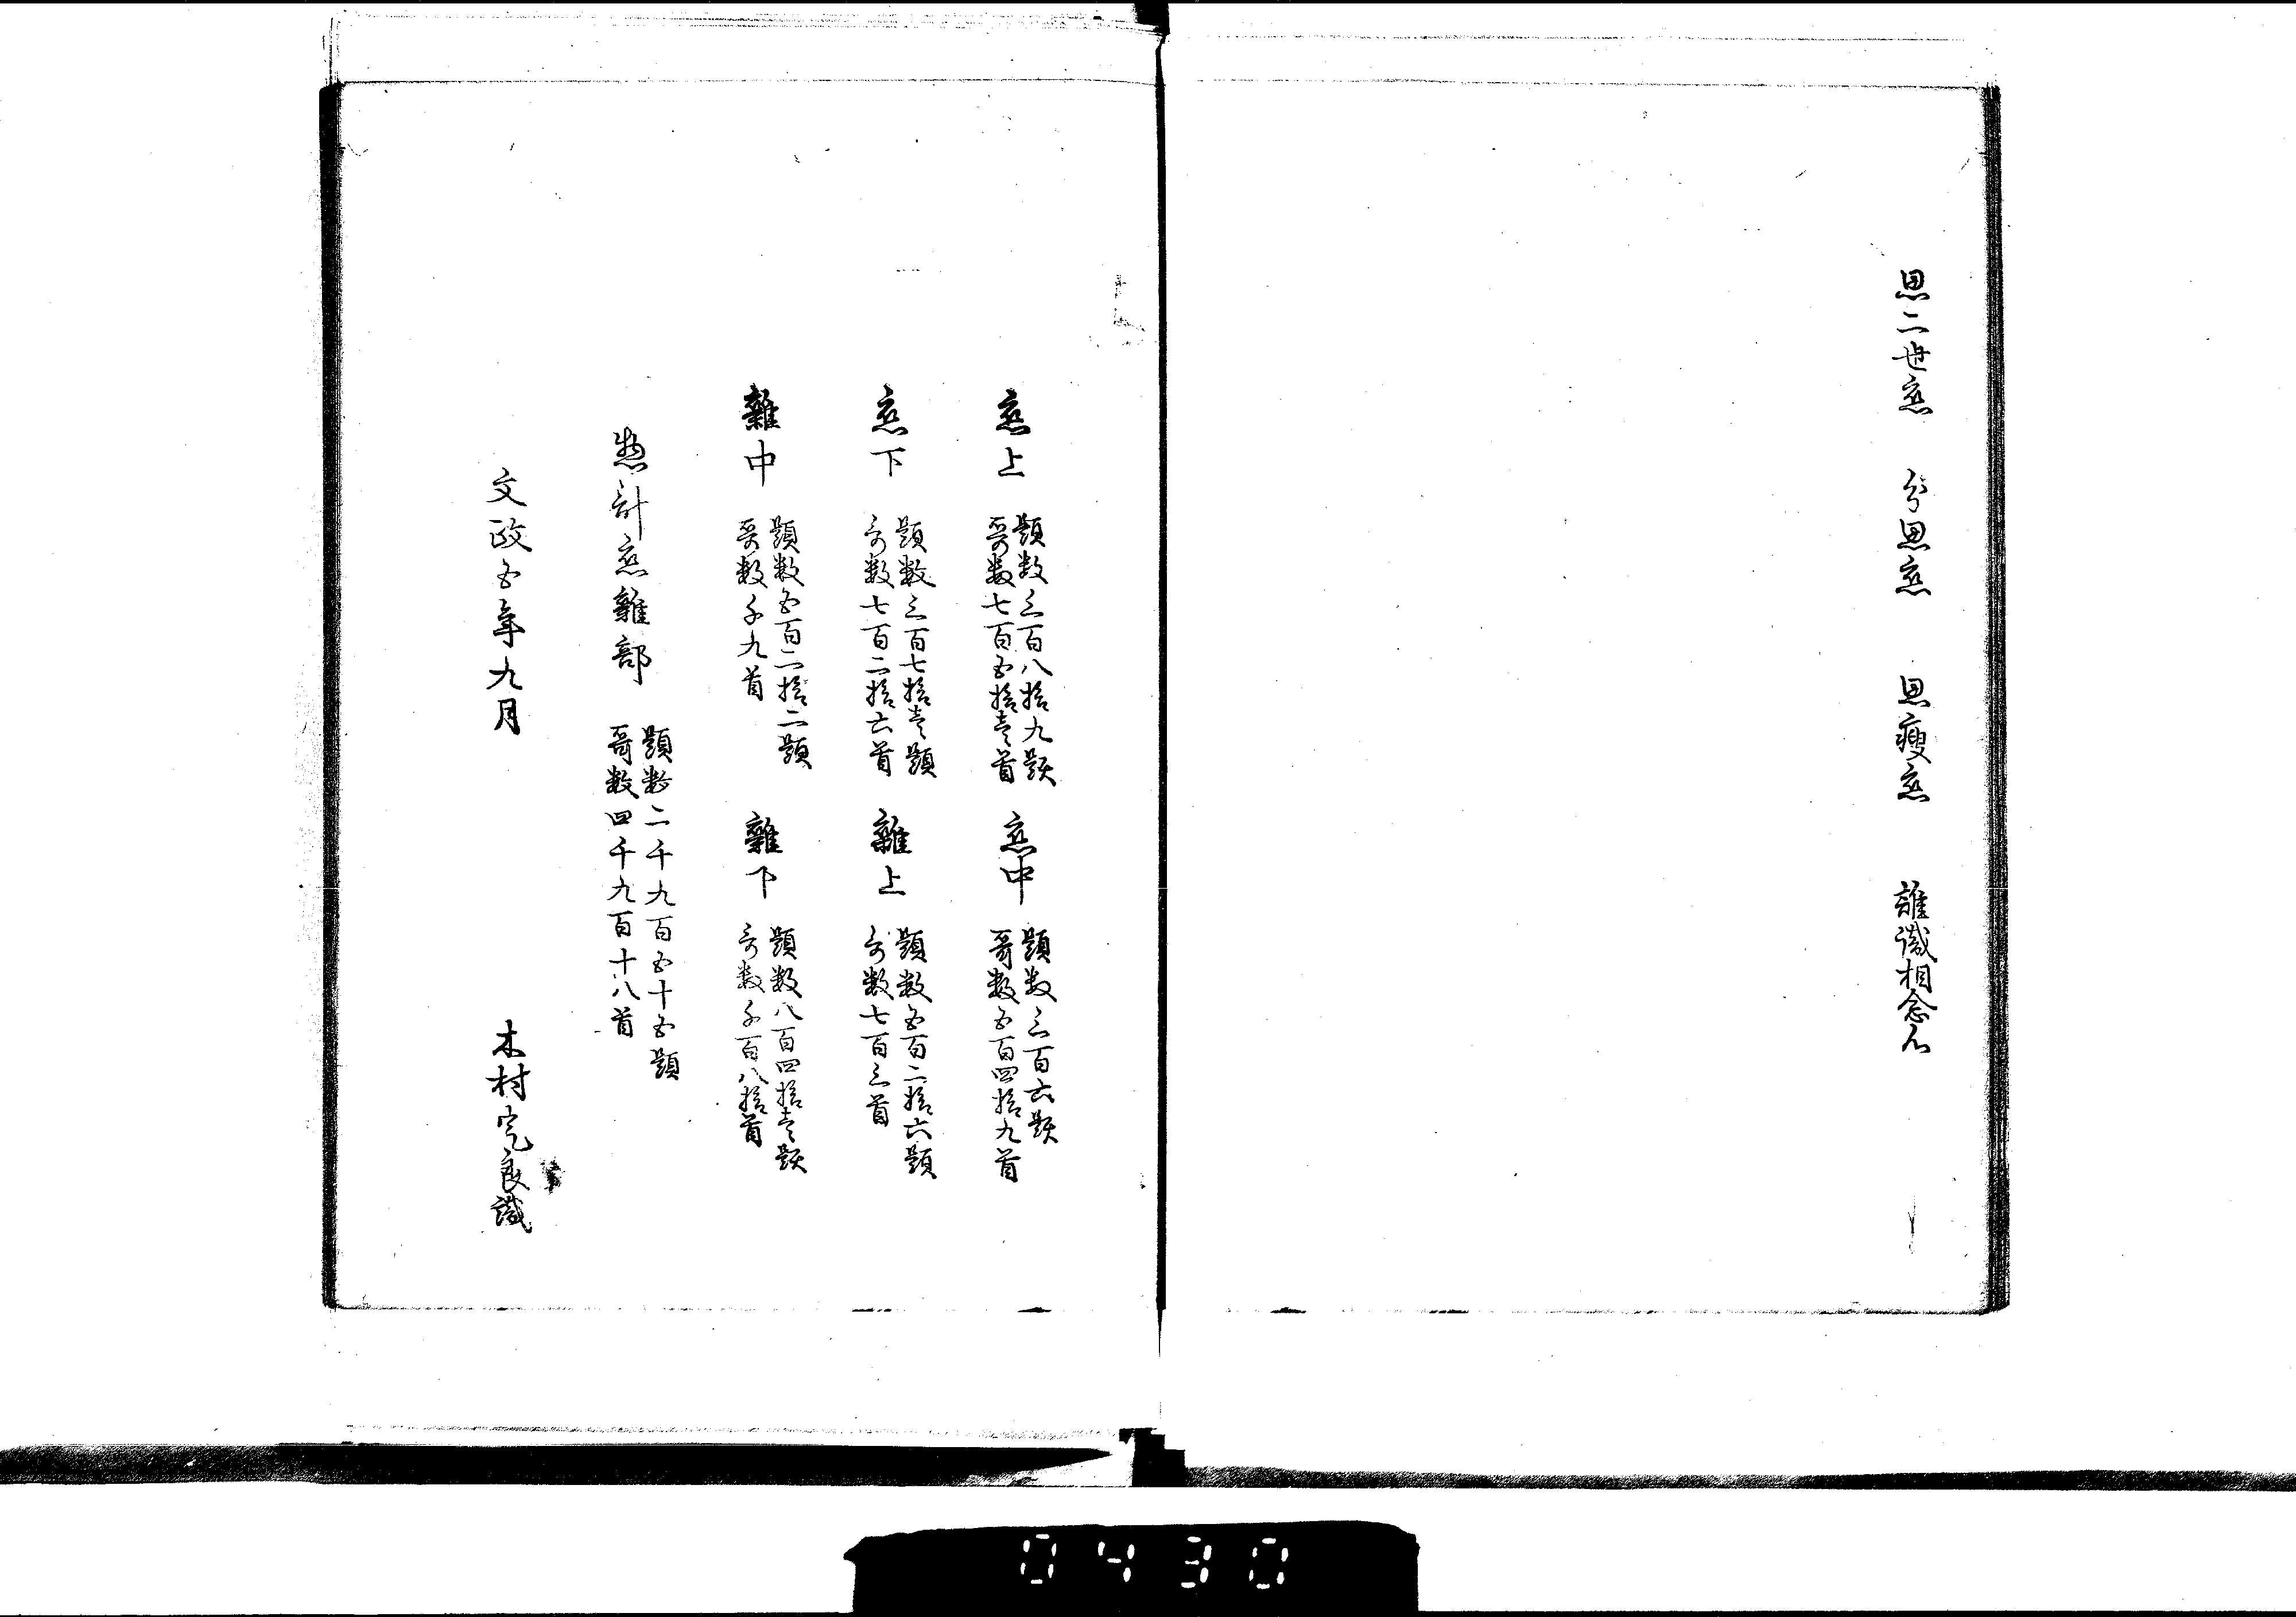 思二世恋　分思恋　思痩恋　誰識相念人
恋上　題数三百八拾九題
哥数七百五拾壱首
恋中　題数三百六題
哥数五百四拾九首
恋下　題数三百七拾壱題
哥数七百二拾六首
雑上　題数五百二拾六題
哥数七百三首
雑中　題数五百二拾二題
哥数千九首
雑下　題数八百四拾壱題
哥数千百八拾首
惣計恋雑部　題数二千九百五十五題
哥数四千九百十八首
文政五年九月　木村定良識
0430